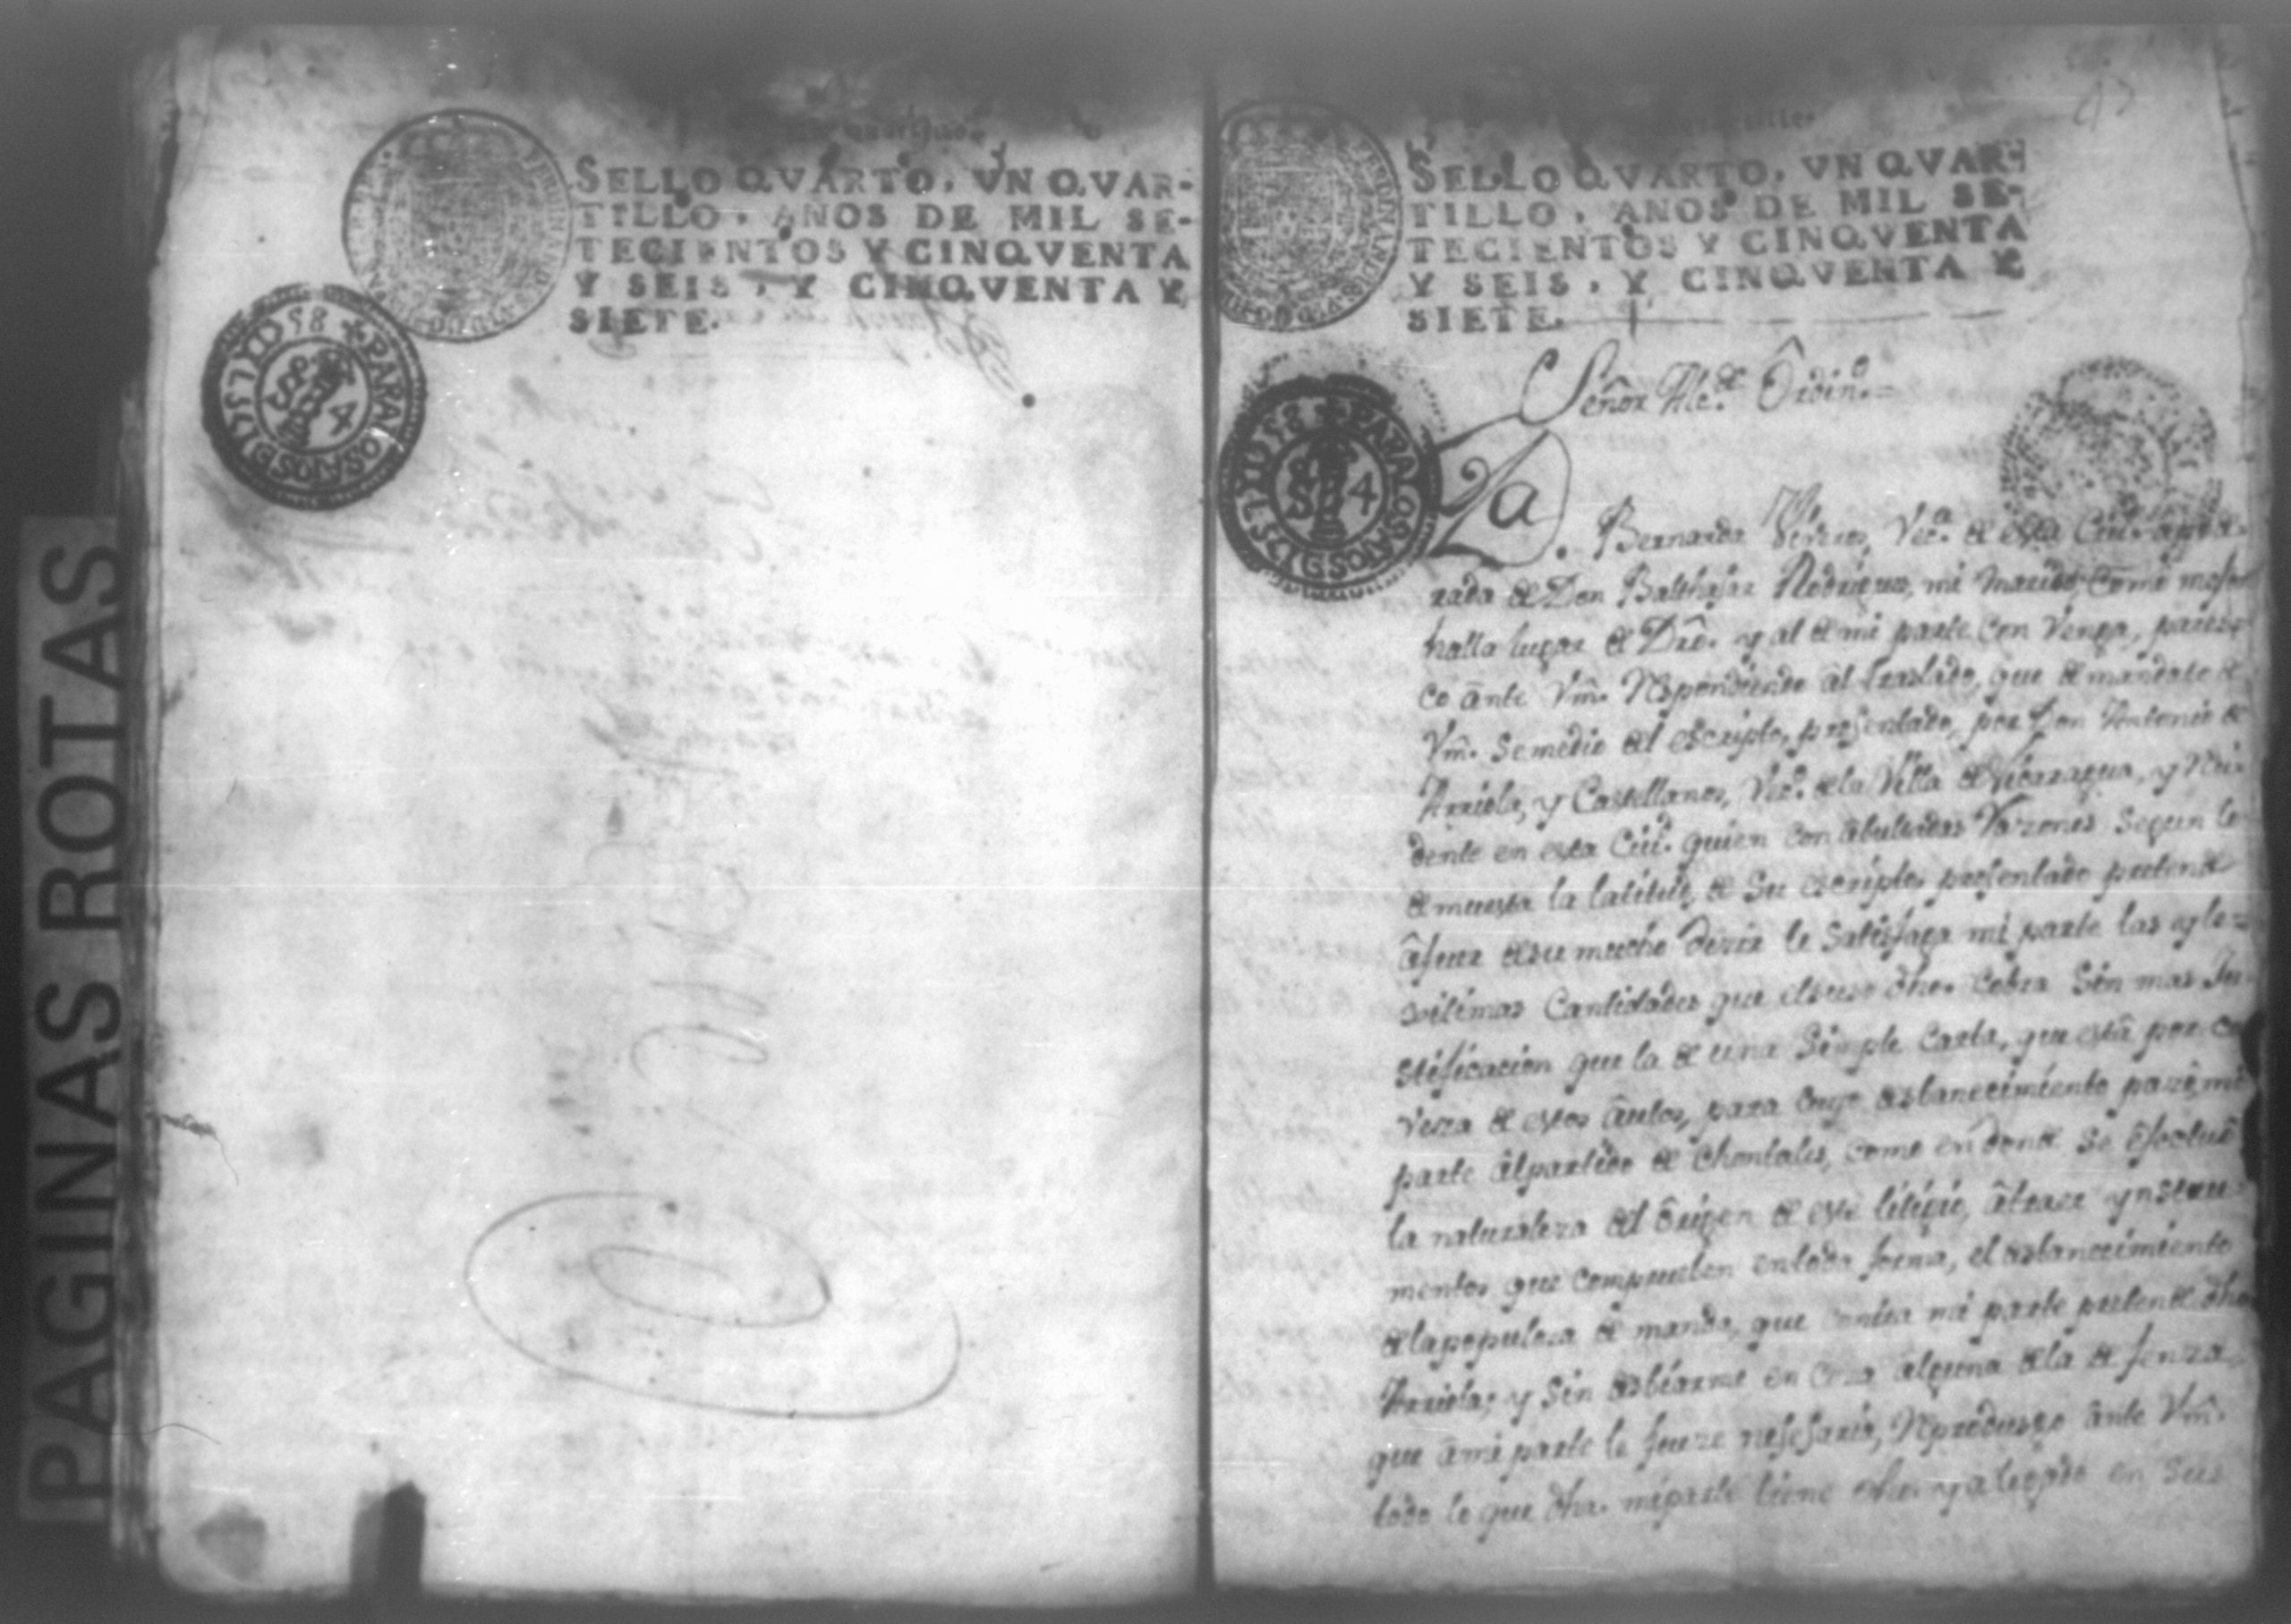 PAGINAS ROTAS
SELLO QVARTO, VN QVAR-
TILLO, AÑOS DE MIL SE-
TECIENTOS Y CINQVENTA
Y SEIS, Y CINQVENTA Y
SIETE.
PARA LOS AÑOS DE 1757 Y 58
4
SELLO QVARTO, VN QVAR-
TILLO, AÑOS DE MIL SE-
TECIENTOS Y CINQVENTA
Y SEIS, Y CINQVENTA Y
SIETE.
Señor Alc.de Ordin.o
PARA LOS AÑOS DE 1757 Y 58
4
Da. Bernarda Vec.a de esta Ciu.d apode-
rada de Don Balthasar Rodrigues, mi marido, Como mas
halla lugar de Dro. y al de mi parte con Venga, pares-
co ante Vm. Respondiendo al traslado, que de mandato de
Vm. se me dio del escripto, presentado, por Don Antonio de
Arriola, y Castellanos, Vez.o de la Villa de Nicaragua, y Resi-
dente en esta Ciu.d quien con abultadas Razones segun lo
demuestra la latitud, de su escripto, presentado pretende
â fuer de su mucho dezir le satisfaga mi parte las yle-
gitimas Cantidades que el suso dho. cobra sin mas Ju-
stificacion que la de una simple Carta, que estâ por ca-
veza de estos âutos, para cuyo desbanecimiento passô mi
parte âl partido de Chontales, como en donde se êfectuô
la naturaleza del ôrigen de este litigio, â traer ynstru-
mentos que comprueben en toda forma, el desbanecimiento
de la populosa demanda, que contra mi parte pretende dho
Arriola; y sin desbiarme en cosa alguna de la defenza
que â mi parte le fuere nesesaria, Reproduzgo ânte Vm.
todo lo que dha. mi parte tiene dho. y alegado en sus